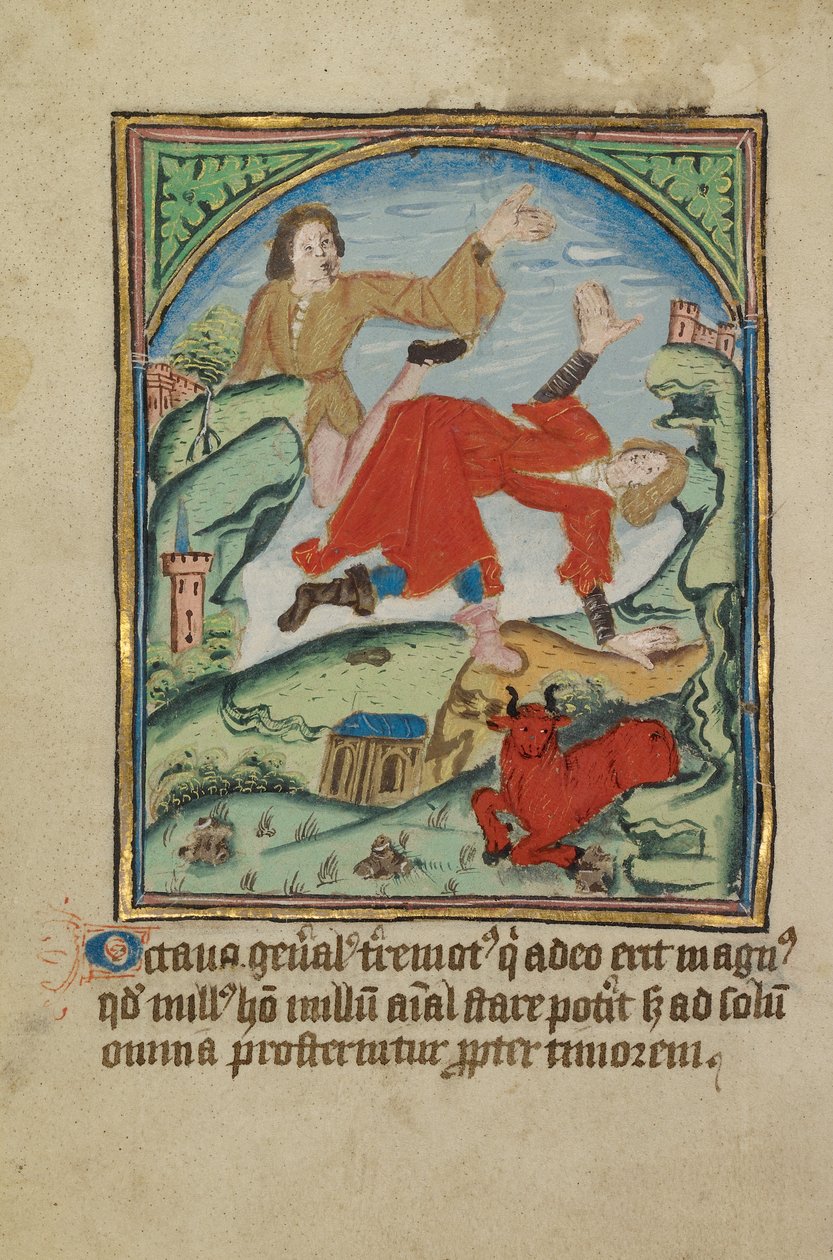 Octava gen̄al᷒ t̄remot᷒ q̄ adeo erit magn᷒
qd̕ null᷒ hō nullū aīal stare pot̄it sꝫ ad solū
omnia prosternūtur ꝓpter timorem.